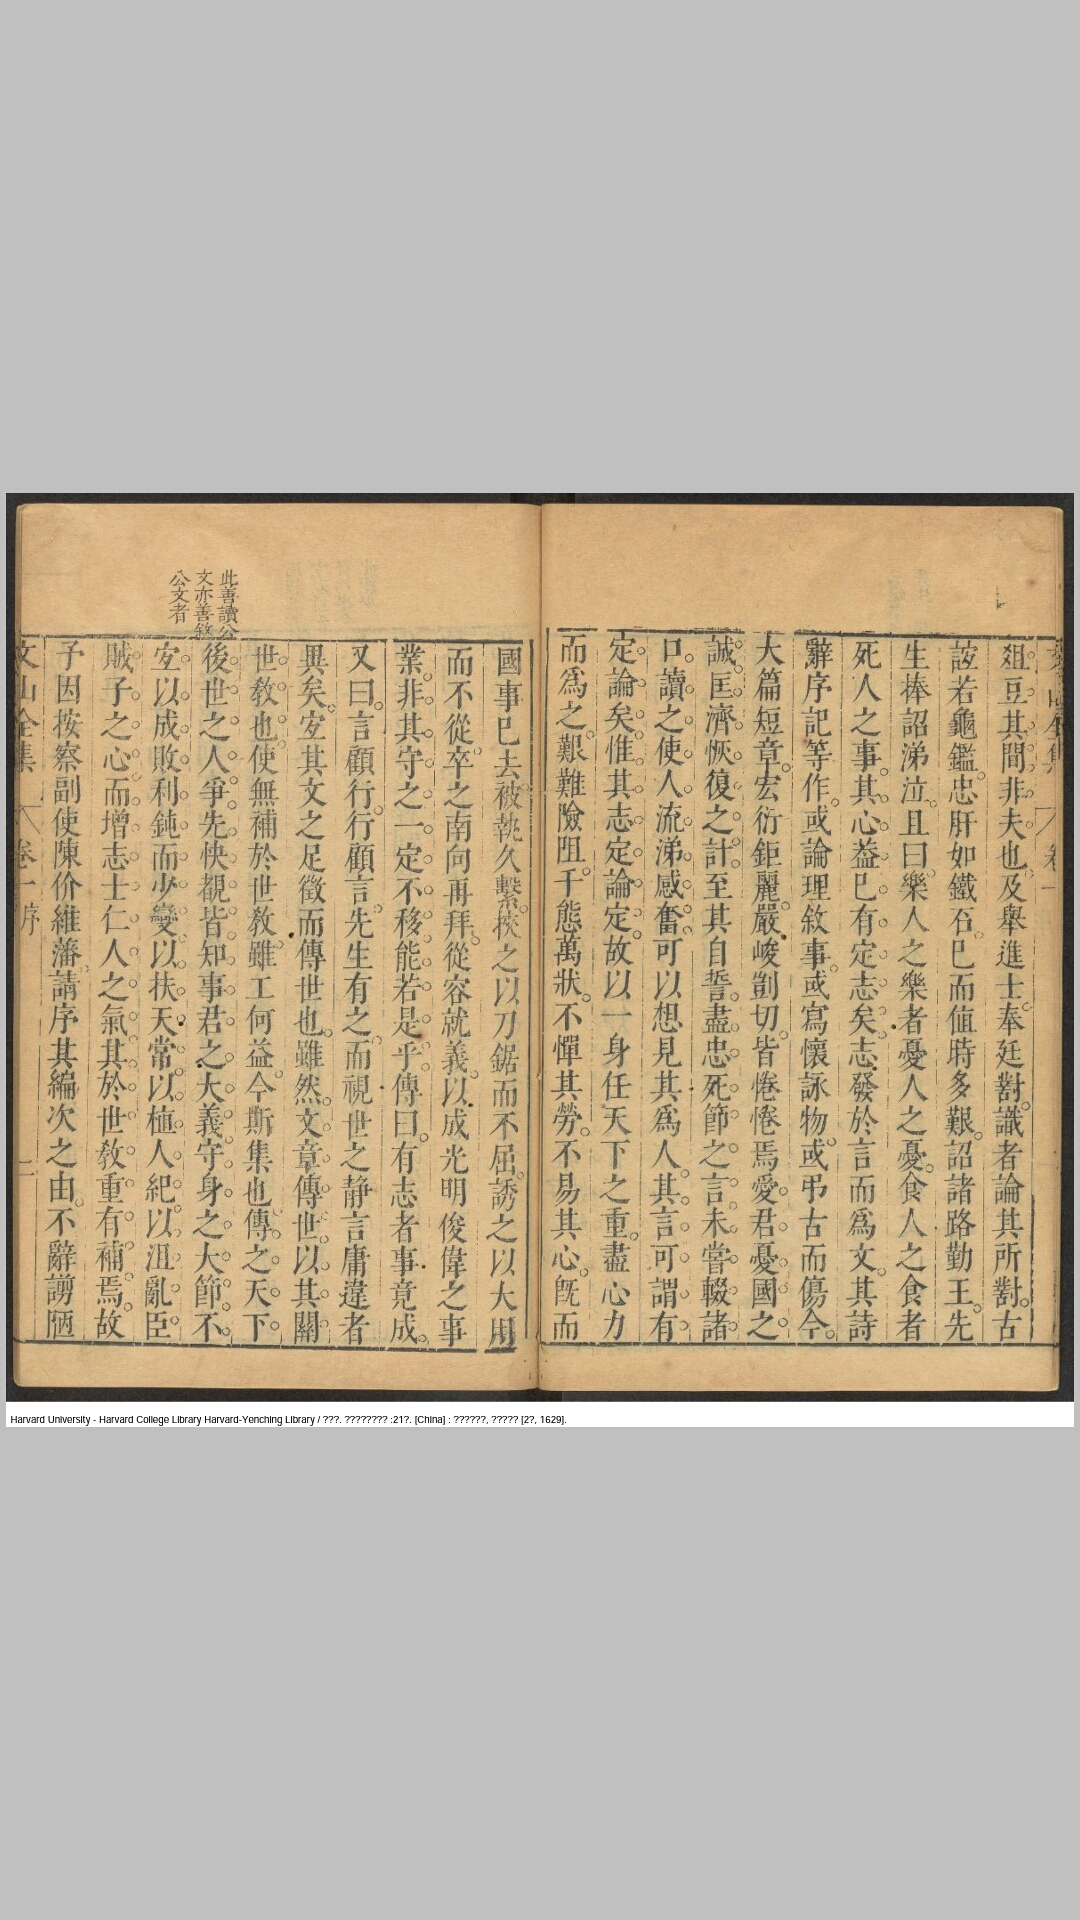 俎豆其間非夫也及舉進士奉廷對識者論其所對古
誼若龜鑑忠肝如鐵石巳而値時多艱詔諸路勤王先
生捧詔涕泣且曰樂人之樂者憂人之憂食人之食者
死人之事其心葢巳有定志矣志發於言而爲文其詩
辭序記等作或論理敘事或寫懷詠物或弔古而傷今
大篇短章宏衍鉅麗嚴峻剴切皆惓惓焉愛君憂國之
誠匡濟恢復之計至其自誓盡忠死節之言未嘗輟諸
口讀之使人流涕感奮可以想見其爲人其言可謂有
定論矣惟其志定論定故以一身任天下之重盡心力
而爲之艱難險阻千態萬狀不憚其勞不易其心旣而
國事巳去被執久繫挾之以刀鋸而不屈誘之以大用
而不從卒之南向再拜從容就義以成光明俊偉之事
業非其守之一定不移能若是乎傳曰有志者事竟成
又曰言顧行行顧言先生有之而視世之静言庸違者
異矣宜其文之足徵而傳世也雖然文章傳世以其關
世敎也使無補於世敎雖工何益今斯集也傳之天下
後世之人爭先快覩皆知事君之大義守身之大節不
宜以成敗利鈍而少變以扶天常以植人紀以沮亂臣
賊子之心而增志士仁人之氣其於世敎重有補焉故
予因按察副使陳价維藩請序其編次之由不辭謭陋
此善讀公
文亦善敘
公文者
文山全集 卷一序
Harvard University - Harvard College Library Harvard-Yenching Library / ???. ???????? :21?. [China] : ??????, ????? [2?, 1629].